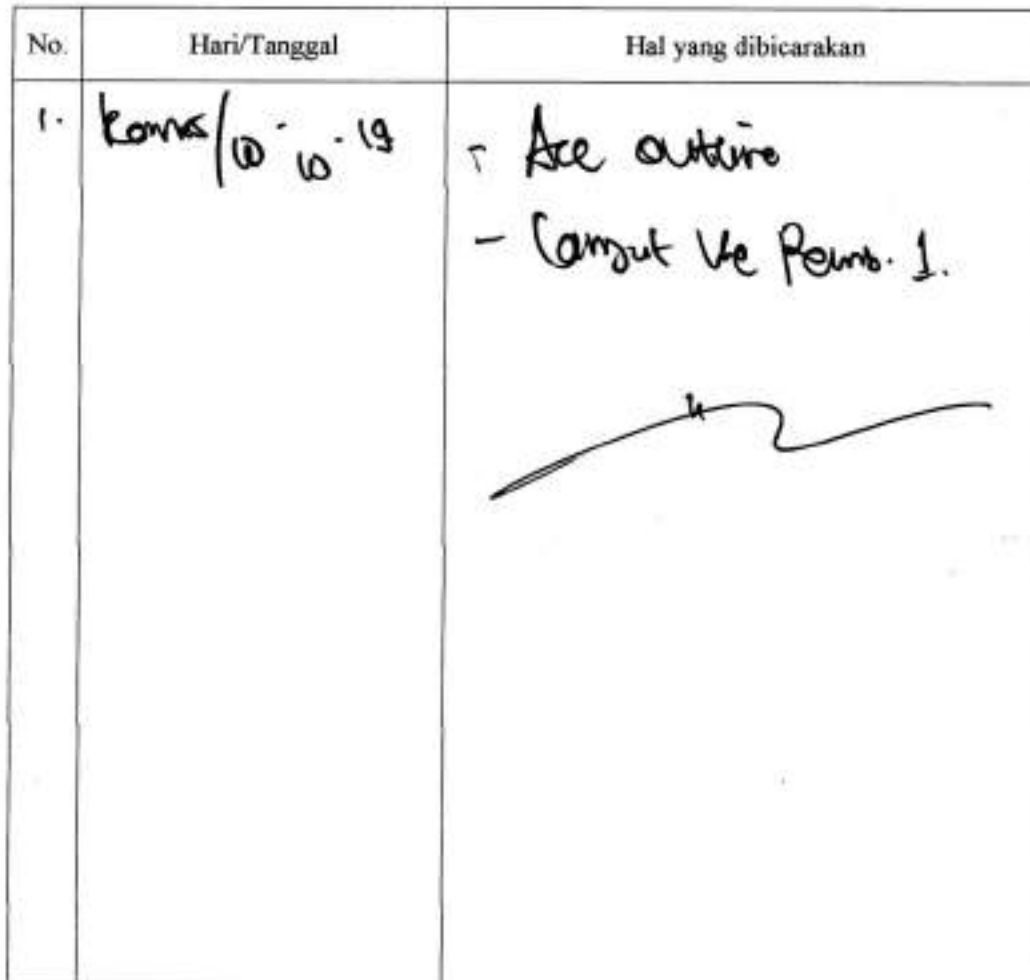 No. Hari/Tanggal Hal yang dibicarakan
1. Kamis/10-10-19 - Acc outline
- Lanjut ke Pemb. 1.